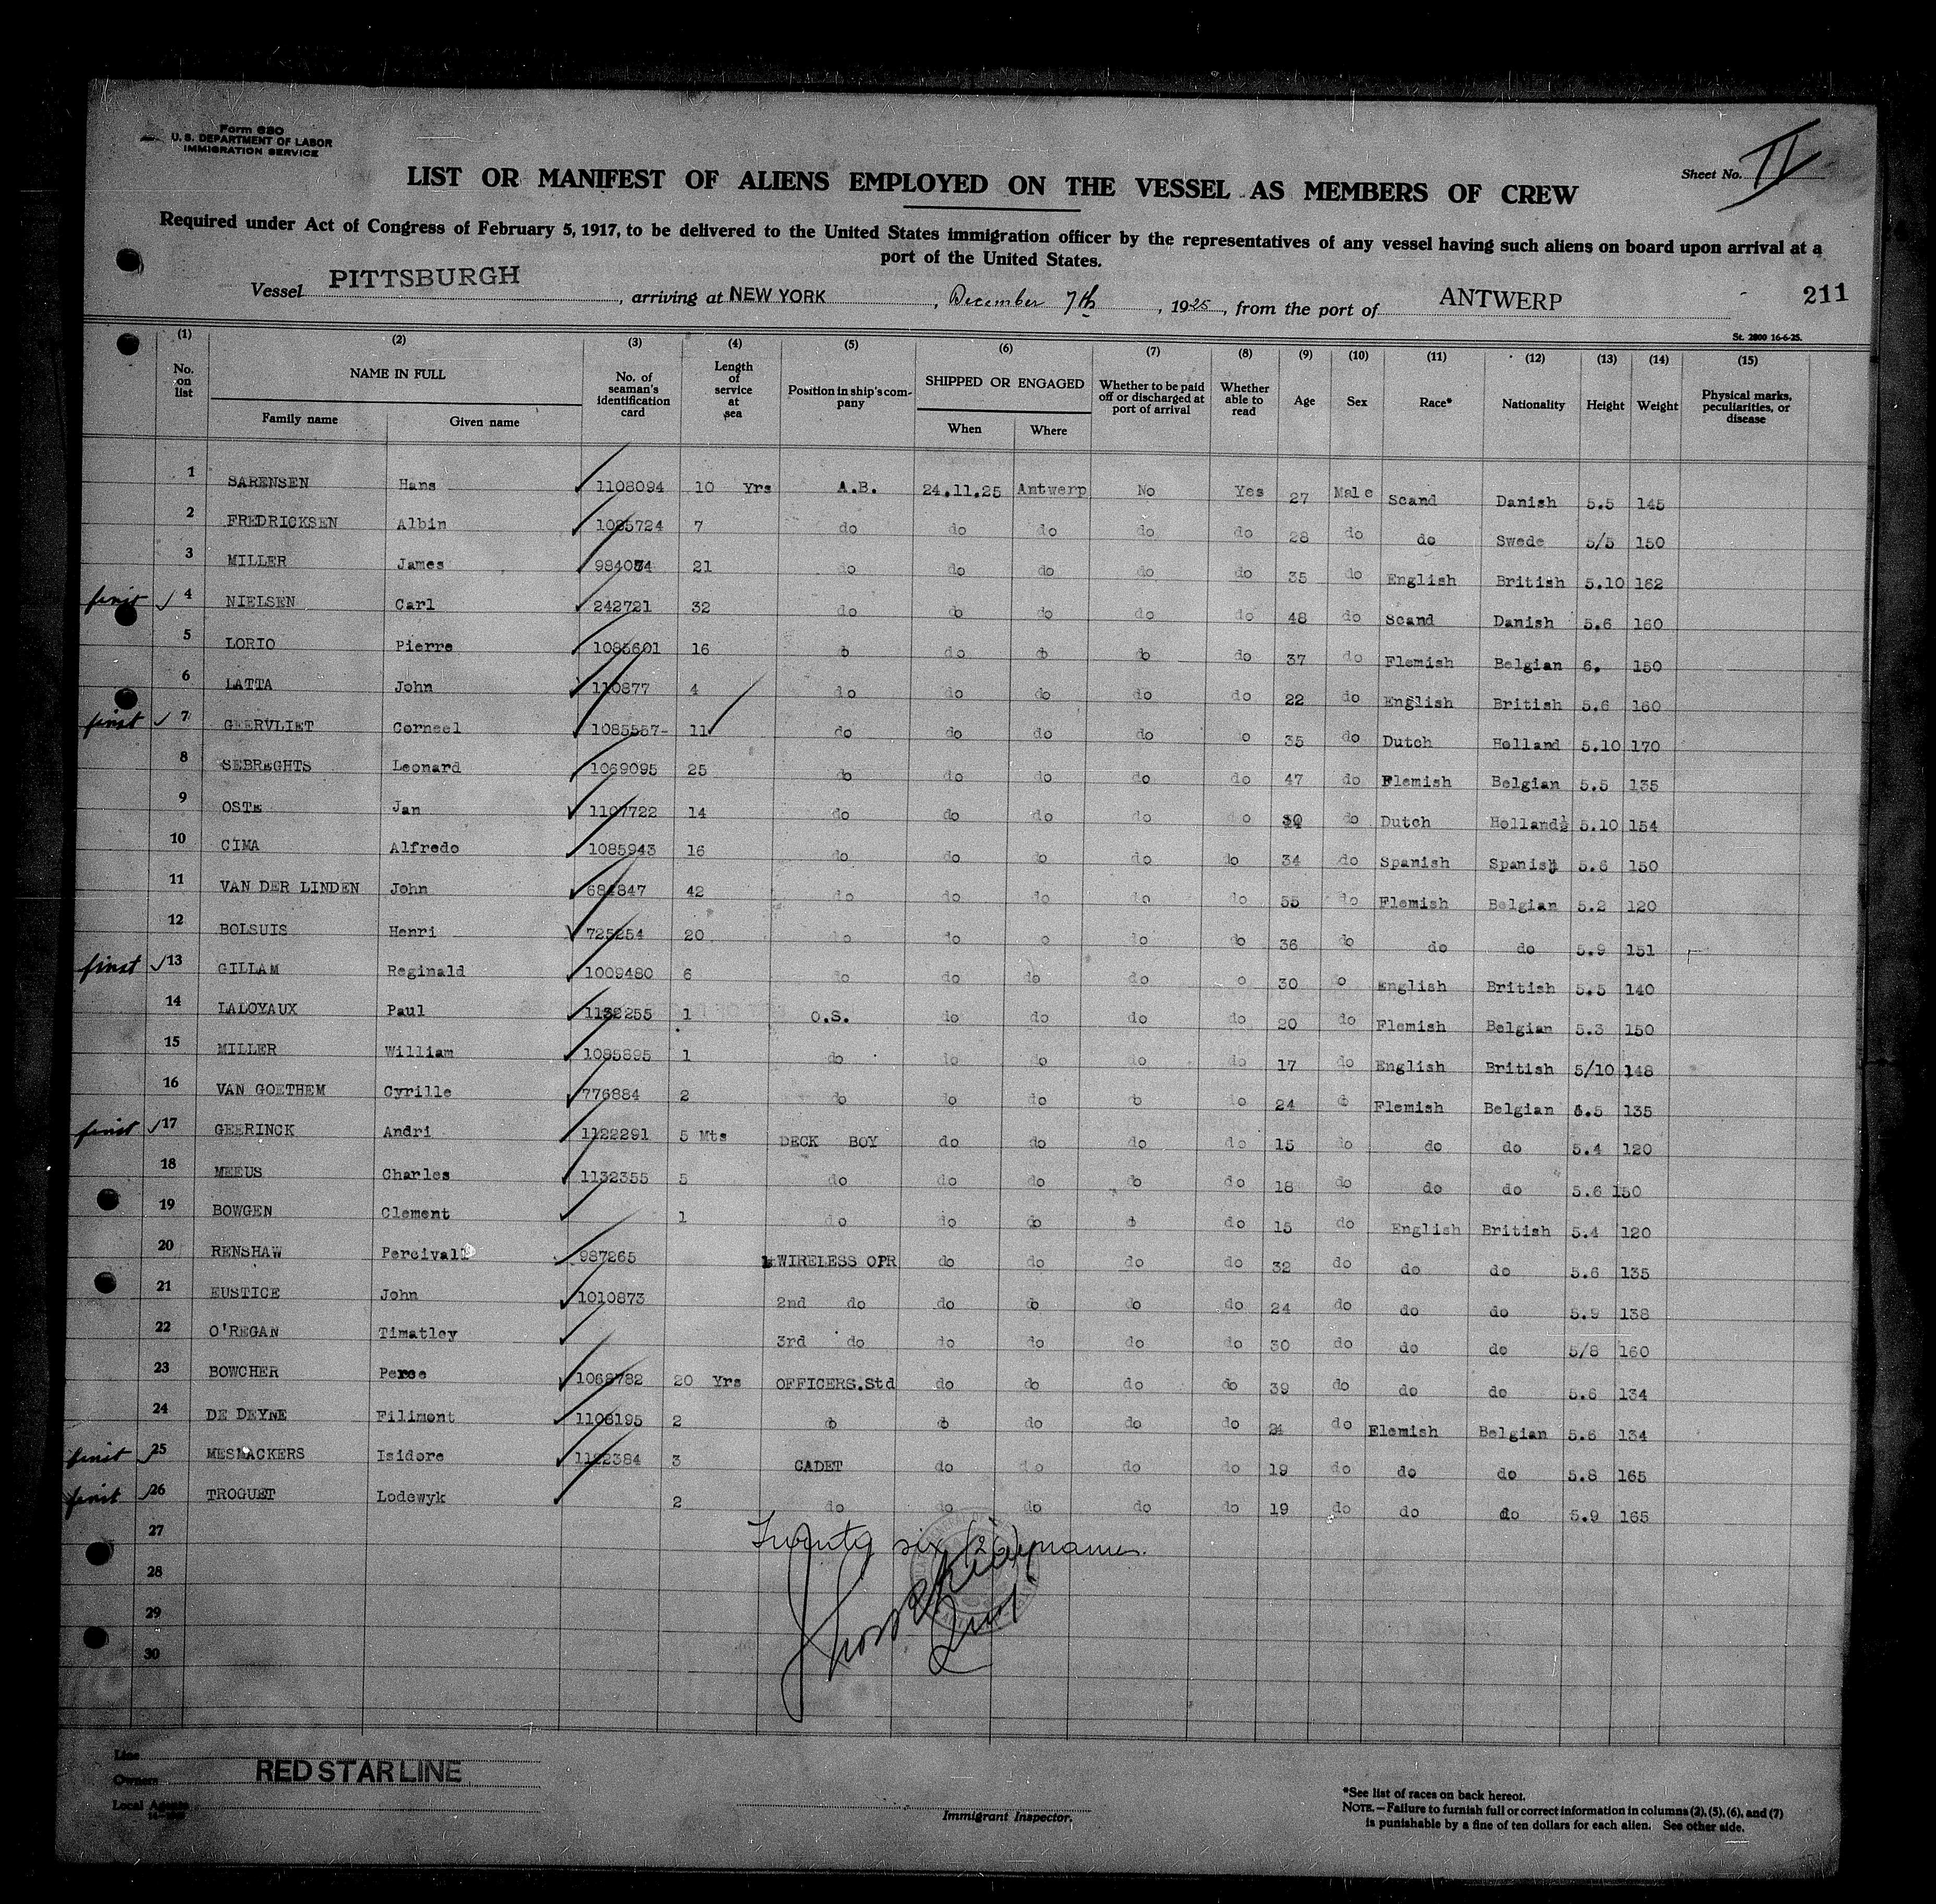 Form 680
U. S. DEPARTMENT OF LABOR
IMMIGRATION SERVICE
Sheet No. II
LIST OR MANIFEST OF ALIENS EMPLOYED ON THE VESSEL AS MEMBERS OF CREW
Required under Act of Congress of February 5, 1917, to be delivered to the United States immigration officer by the representatives of any vessel having such aliens on board upon arrival at a
port of the United States.
Vessel PITTSBURGH, arriving at NEW YORK, December 7th, 1925, from the port of ANTWERP 211
St. 2800 16-6-25.
(1) (2) (3) (4) (5) (6) (7) (8) (9) (10) (11) (12) (13) (14) (15)
No. on list NAME IN FULL Family name Given name No. of seaman's identification card Length of service at sea Position in ship's company SHIPPED OR ENGAGED When Where Whether to be paid off or discharged at port of arrival Whether able to read Age Sex Race* Nationality Height Weight Physical marks, peculiarities, or disease
1 SARENSEN Hans 1108094 10 Yrs A.B. 24.11.25 Antwerp No Yes 27 Male Scand Danish 5.5 145
2 FREDRICKSEN Albin 1085724 7 do do do do do 28 do do Swede 5/5 150
3 MILLER James 21 do do do do do 35 do English British 5.10 162
4 NIELSEN Carl 242721 32 do do do do do 48 do Scand Danish 5.6 160
5 LORIO Pierre 1085601 16 do do do do do 37 do Flemish Belgian 6. 150
6 LATTA John 110877 4 do do do do do 22 do English British 5.6 160
first 7 GEERVLIET Corneel 1085557- 11 do do do do o 35 do Dutch Holland 5.10 170
8 SEBREGHTS Leonard 1069095 25 do do do do do 47 do Flemish Belgian 5.5 135
9 OSTE Jan 1107722 14 do do do do do 30 do Dutch Holland 5.10 154
10 CIMA Alfredo 1085943 16 do do do do do 34 do Spanish Spanish 5.6 150
11 VAN DER LINDEN John 684847 42 do do do do do 55 do Flemish Belgian 5.2 120
12 BOLSUIS Henri 725254 20 do do o do do 36 do do do 5.9 151
first 13 GILLAM Reginald 1009480 6 do do do do o 30 o English British 5.5 140
14 LALOYAUX Paul 1132255 1 O.S. do do do do 20 do Flemish Belgian 5.3 150
15 MILLER William 1085895 1 do do do do do 17 do English British 5/10 148
16 VAN GOETHEM Cyrille 776884 2 do do do do do 24 do Flemish Belgian 6.5 135
first 17 GEERINCK Andri 1122291 5 Mts DECK BOY do do do do 15 do do do 5.4 120
18 MEEUS Charles 1132355 5 do do do do do 18 do do do 5.6 150
19 BOWGEN Clement 1 do do do do do 15 do English British 5.4 120
20 RENSHAW Percivall 987265 WIRELESS OPR do do do do 32 do do do 5.6 135
21 EUSTICE John 1010873 2nd do do do do do 24 do do do 5.9 138
22 O'REGAN Timatley 3rd do do do do do 30 do do do 5/8 160
23 BOWCHER Perce 1068782 20 Yrs OFFICERS.Std do do do do 39 do do do 5.6 134
24 DE DEYNE Filimont 1108195 2 do do do do do 21 do Flemish Belgian 5.6 134
first 25 MESMACKERS Isidore 1122384 3 CADET do do do do 19 do do do 5.8 165
first 26 TROGUET Lodewyk 2 do do do do do 19 do do do 5.9 165
27
28
29
30
Twenty six (26) names.
Line
Owners RED STAR LINE
Local Agents
Immigrant Inspector.
*See list of races on back hereof.
NOTE.—Failure to furnish full or correct information in columns (2), (5), (6), and (7)
is punishable by a fine of ten dollars for each alien. See other side.